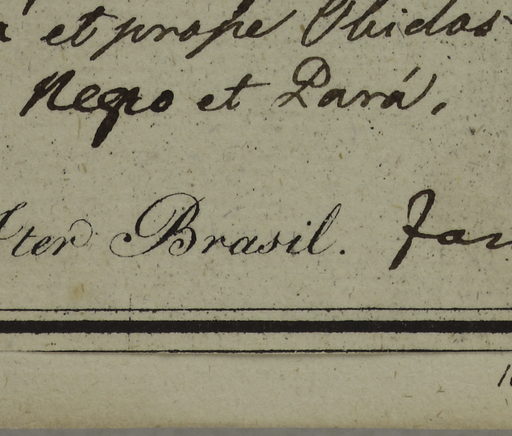 et prope Obidos
Negro et Pará.
Iter Brasil. Jan